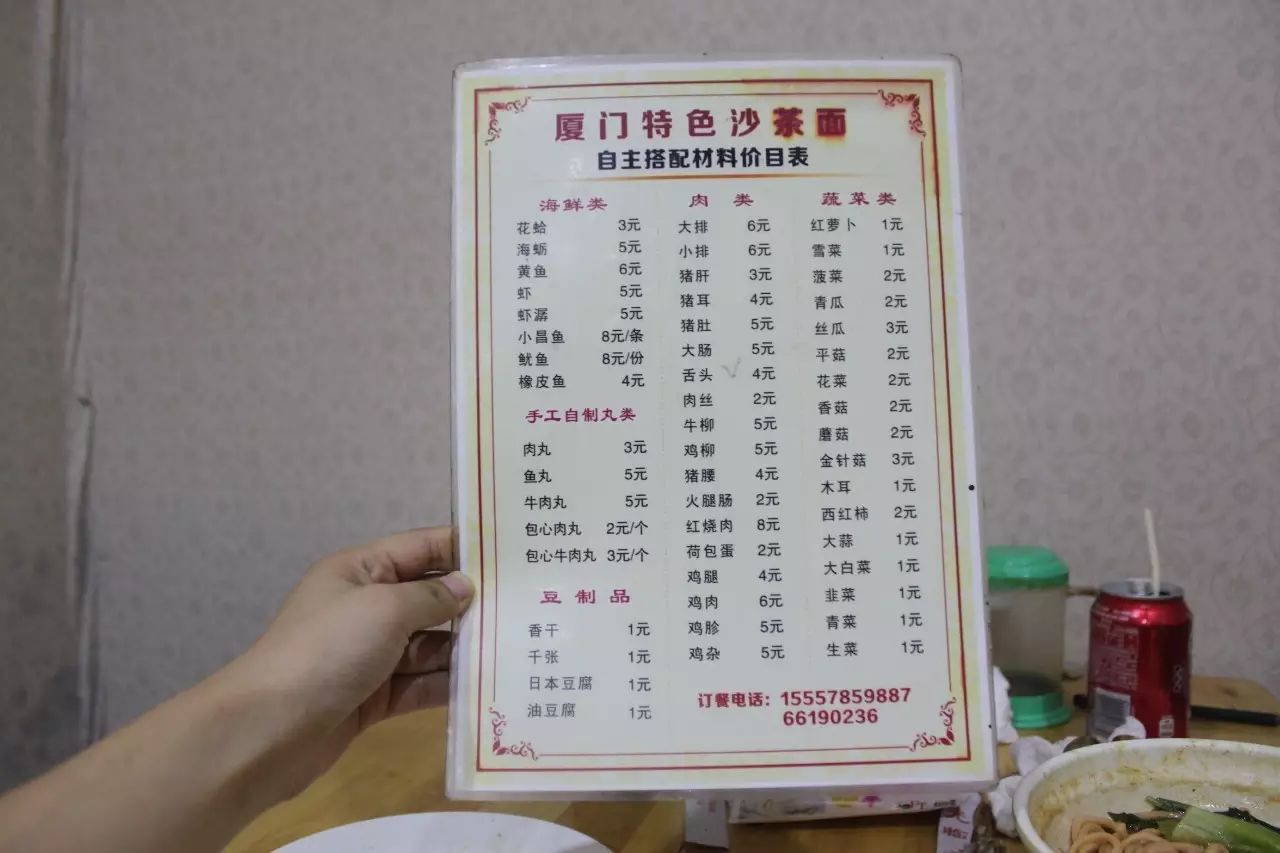 厦门特色沙茶面
自主搭配材料价目表
海鲜类
花蛤 3元
海蛎 5元
黄鱼 6元
虾 5元
虾潺 5元
小昌鱼 8元/条
鱿鱼 8元/份
橡皮鱼 4元
手工自制丸类
肉丸 3元
鱼丸 5元
牛肉丸 5元
包心肉丸 2元/个
包心牛肉丸 3元/个
豆制品
香干 1元
千张 1元
日本豆腐 1元
油豆腐 1元
肉类
大排 6元
小排 6元
猪肝 3元
猪耳 4元
猪肚 5元
大肠 5元
舌头 4元
肉丝 2元
牛柳 5元
鸡柳 5元
猪腰 4元
火腿肠 2元
红烧肉 8元
荷包蛋 2元
鸡腿 4元
鸡肉 6元
鸡胗 5元
鸡杂 5元
蔬菜类
红萝卜 1元
雪菜 1元
菠菜 2元
青瓜 2元
丝瓜 3元
平菇 2元
花菜 2元
香菇 2元
蘑菇 2元
金针菇 3元
木耳 1元
西红柿 2元
大蒜 1元
大白菜 1元
韭菜 1元
青菜 1元
生菜 1元
订餐电话：15557859887
66190236